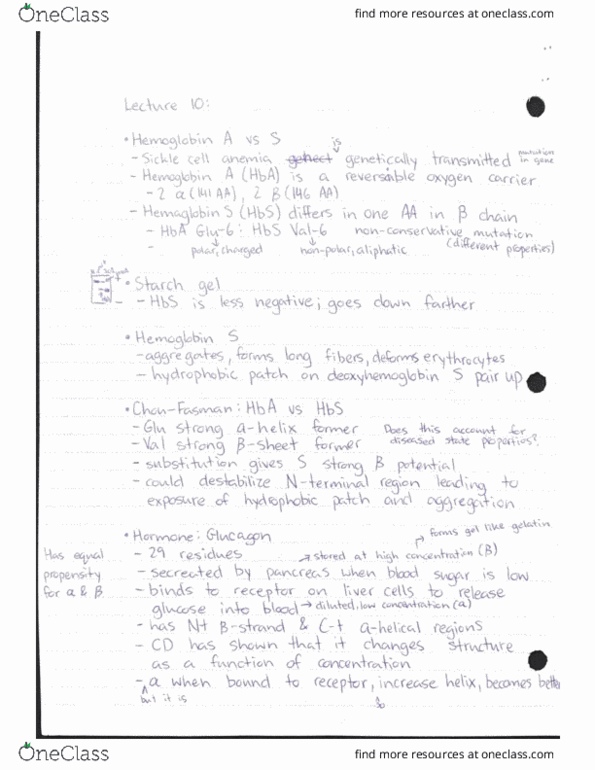 OneClass
find more resources at oneclass.com
Lecture 10:
• Hemoglobin A vs S
is
- Sickle cell anemia genetically transmitted mutation in gene
- Hemoglobin A (HbA) is a reversible oxygen carrier
- 2 α (141 AA), 2 β (146 AA)
- Hemoglobin S (HbS) differs in one AA in β chain
- HbA Glu-6: HbS Val-6 non-conservative mutation
polar, charged non-polar, aliphatic (different properties)
• Starch gel
- HbS is less negative; goes down farther
• Hemoglobin S
- aggregates, forms long fibers, deforms erythrocytes
- hydrophobic patch on deoxyhemoglobin S pair up
• Chou-Fasman: HbA vs HbS
- Glu strong α-helix former Does this account for
- Val strong β-sheet former diseased state properties?
- substitution gives S strong β potential
- could destabilize N-terminal region leading to
exposure of hydrophobic patch and aggregation
• Hormone: Glucagon → forms gel like gelatin
- 29 residues → stored at high concentration (β)
Has equal propensity for α & β
- secreated by pancreas when blood sugar is low
- binds to receptor on liver cells to release
glucose into blood → diluted, low concentration (α)
- has N-t β-strand & C-t α-helical regions
- CD has shown that it changes structure
as a function of concentration
- α when bound to receptor, increase helix, becomes bette
but it is
OneClass
find more resources at oneclass.com